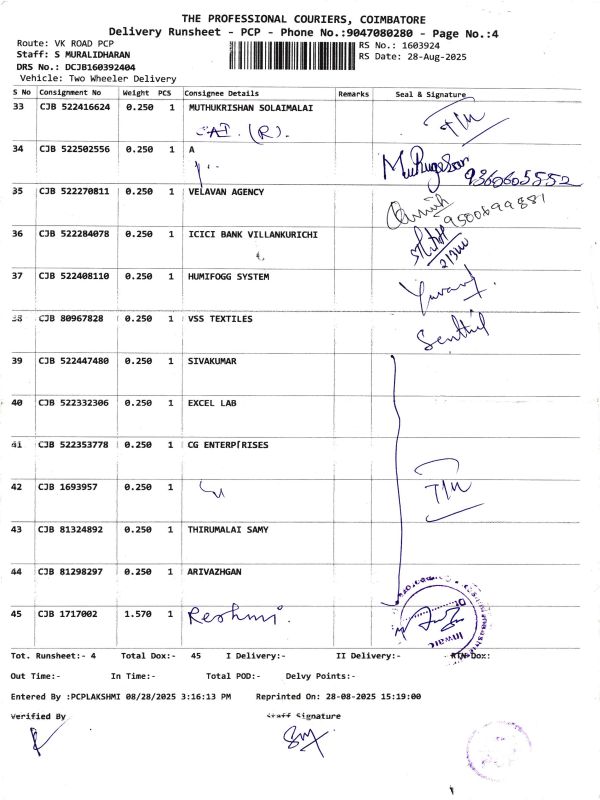 THE PROFESSIONAL COURIERS, COIMBATORE
Delivery Runsheet - PCP - Phone No.:9047080280 - Page No.:4
Route: VK ROAD PCP RS No.: 1603924
Staff: S MURALIDHARAN RS Date: 28-Aug-2025
DRS No.: DCJB160392404
Vehicle: Two Wheeler Delivery
S No Consignment No Weight PCS Consignee Details Remarks Seal & Signature
33 CJB 522416624 0.250 1 MUTHUKRISHAN SOLAIMALAI
(R).
34 CJB 522502556 0.250 1 A
Murugesan 9360605552
35 CJB 522270811 0.250 1 VELAVAN AGENCY
9500699881
36 CJB 522284078 0.250 1 ICICI BANK VILLANKURICHI
37 CJB 522408110 0.250 1 HUMIFOGG SYSTEM
38 CJB 80967828 0.250 1 VSS TEXTILES
Senthil
39 CJB 522447480 0.250 1 SIVAKUMAR
40 CJB 522332306 0.250 1 EXCEL LAB
41 CJB 522353778 0.250 1 CG ENTERPRISES
42 CJB 1693957 0.250 1
43 CJB 81324892 0.250 1 THIRUMALAI SAMY
44 CJB 81298297 0.250 1 ARIVAZHGAN
45 CJB 1717002 1.570 1 Reshmi.
Inward
Tot. Runsheet:- 4 Total Dox:- 45 I Delivery:- II Delivery:- RTN Dox:
Out Time:- In Time:- Total POD:- Delvy Points:-
Entered By :PCPLAKSHMI 08/28/2025 3:16:13 PM Reprinted On: 28-08-2025 15:19:00
Verified By Staff Signature